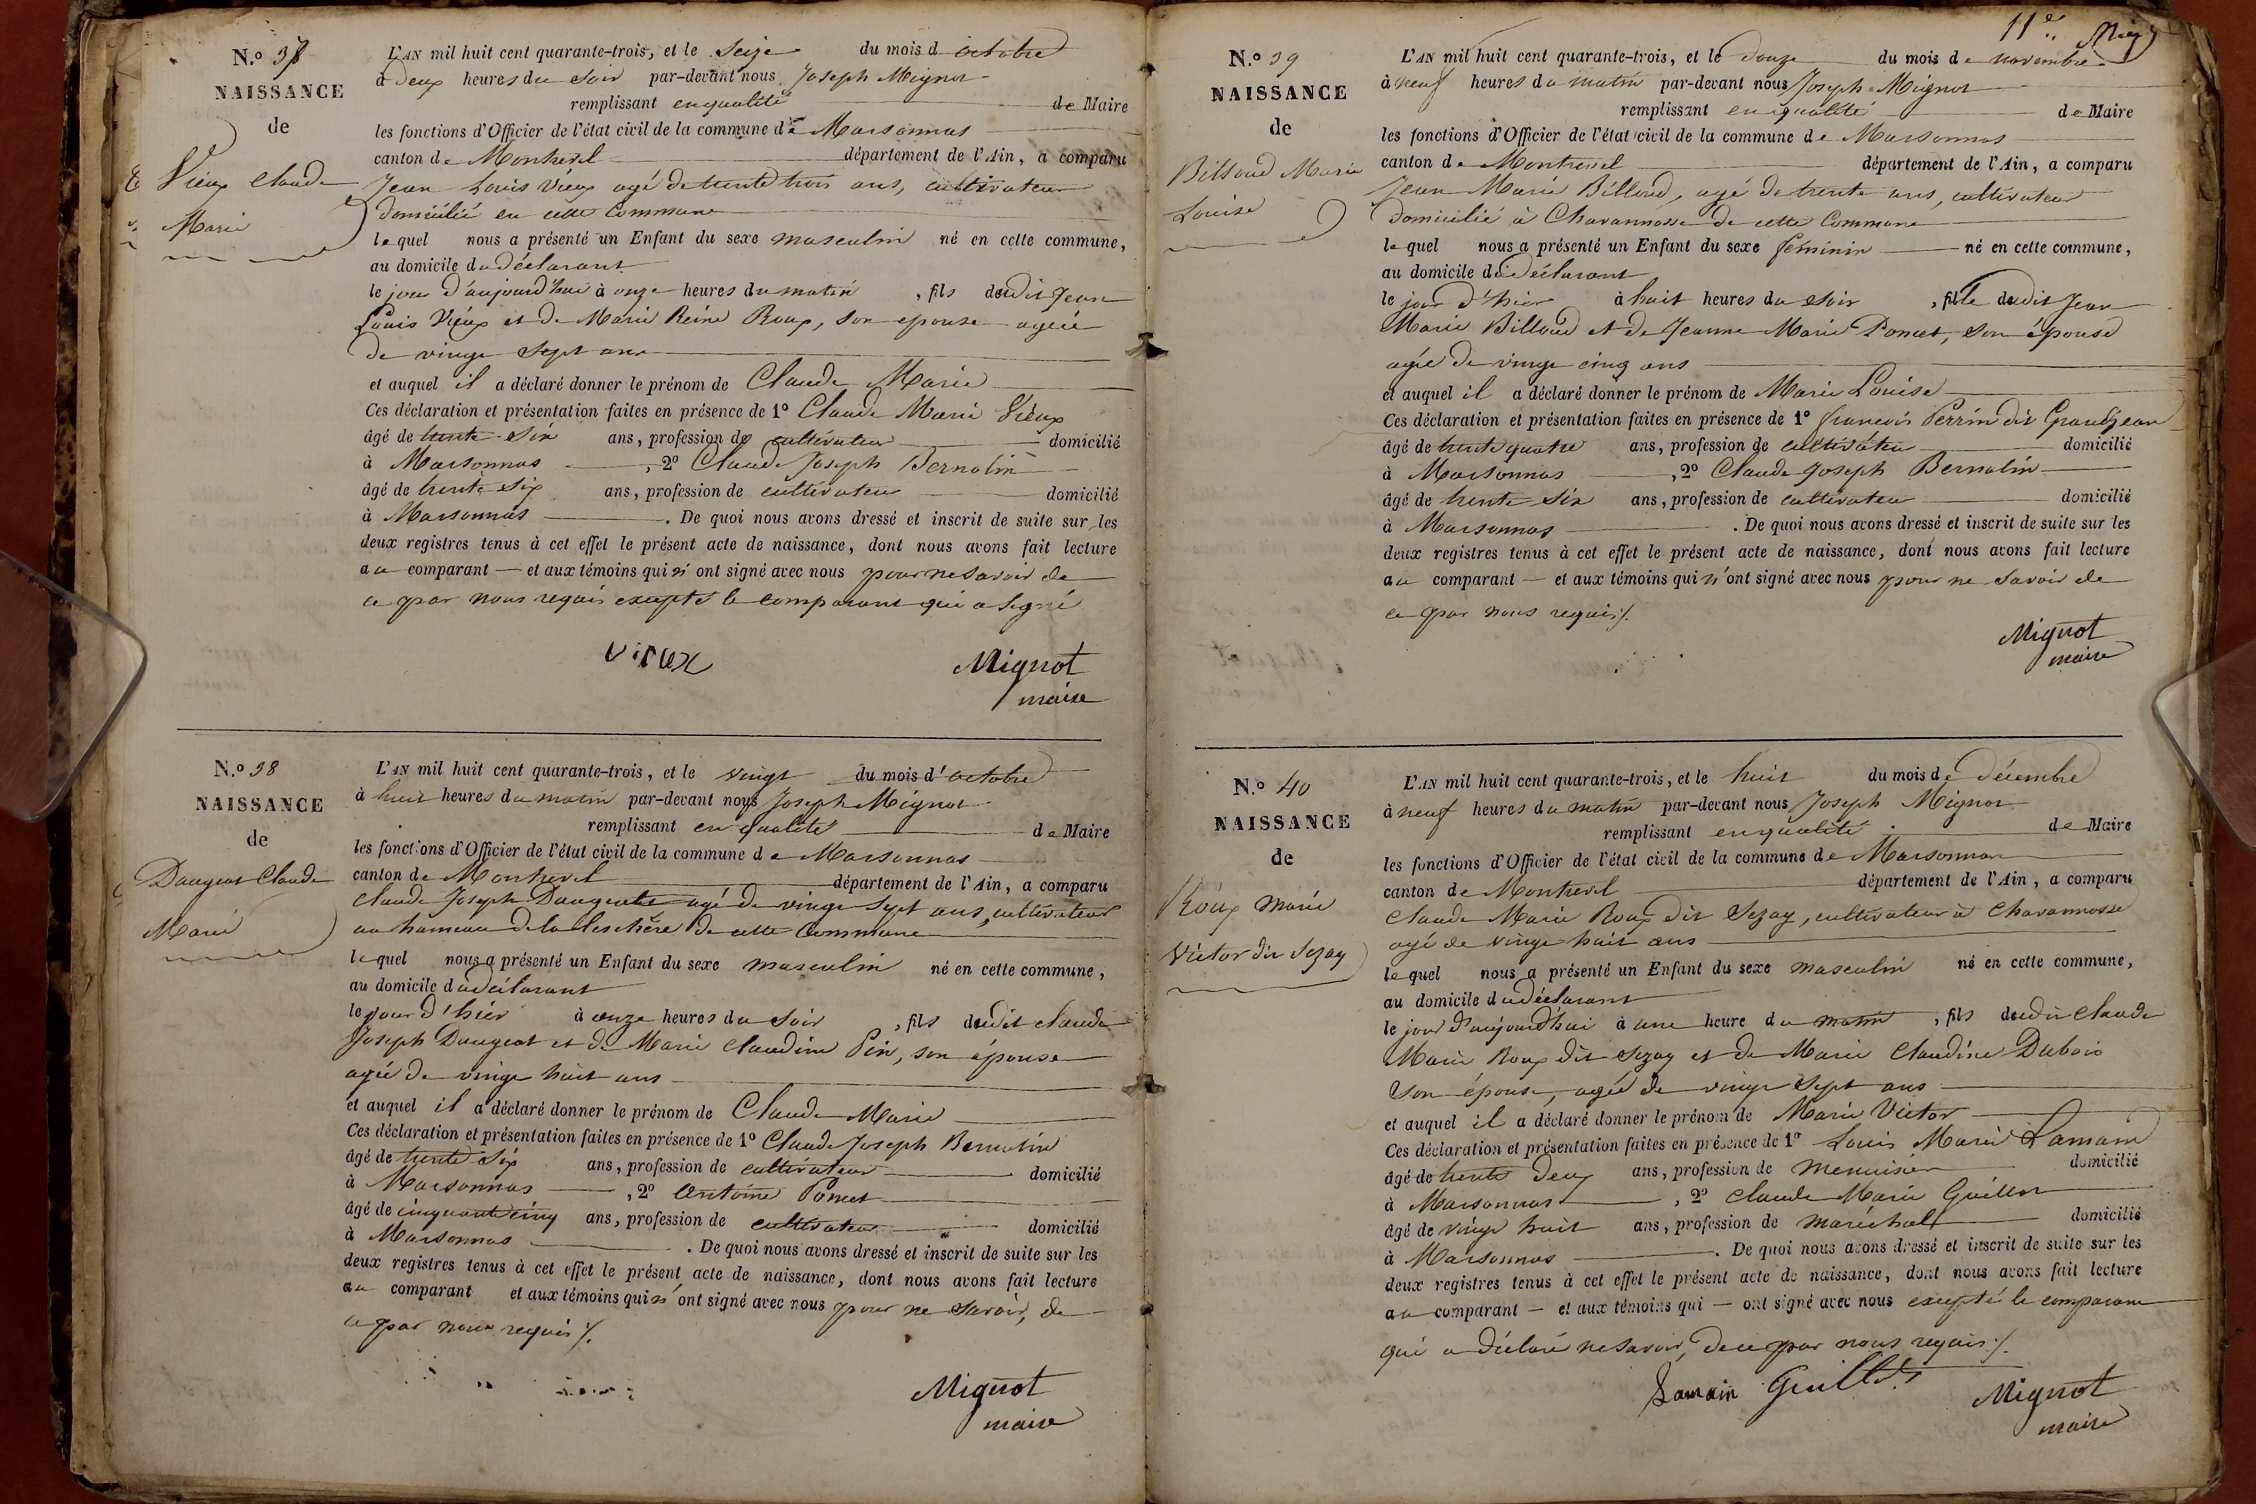 N.o 37
NAISSANCE
de
Vieux Claude
Marie
L'AN mil huit cent quarante-trois, et le Seize du mois d octobre
à Deux heures du Soir par-devant nous Joseph Mignot
remplissant en qualité de Maire
les fonctions d'Officier de l'état civil de la commune de Marsonnas
canton de Montrevel département de l'Ain, a comparu
Jean Louis Vieux agé de trente trois ans, cultivateur
domicilié en cette Commune
lequel nous a présenté un Enfant du sexe masculin né en cette commune,
au domicile du déclarant
le jour d'aujourd'hui à onze heures du matin, fils dudit Jean
Louis Vieux et de Marie Reine Roux, son epouse agée
de vingt sept ans
et auquel il a déclaré donner le prénom de Claude Marie
Ces déclaration et présentation faites en présence de 1o Claude Marie Vieux
âgé de trente six ans, profession de cultivateur domicilié
à Marsonnas, 2o Claude Joseph Bernolin
âgé de trente six ans, profession de cultivateur domicilié
à Marsonnas. De quoi nous avons dressé et inscrit de suite sur les
deux registres tenus à cet effet le présent acte de naissance, dont nous avons fait lecture
au comparant — et aux témoins qui n'ont signé avec nous pour ne savoir de
ce par nous requis excepté le comparant qui a signé
vieux Mignot
maire
N.o 38
NAISSANCE
de
Daugeat Claude
Marie
L'AN mil huit cent quarante-trois, et le vingt du mois d'octobre
à huit heures du matin par-devant nous Joseph Mignot
remplissant en qualité de Maire
les fonctions d'Officier de l'état civil de la commune de Marsonnas
canton de Montrevel département de l'Ain, a comparu
Claude Joseph Daugeat agé de vingt sept ans, cultivateur
au hameau de la Leschère de cette Commune
lequel nous a présenté un Enfant du sexe masculin né en cette commune,
au domicile du déclarant
le jour d'hier à onze heures du soir, fils dudit Claude
Joseph Daugeat et de Marie Claudine Pin, son épouse
agée de vingt huit ans
et auquel il a déclaré donner le prénom de Claude Marie
Ces déclaration et présentation faites en présence de 1o Claude Joseph Bernolin
âgé de trente six ans, profession de cultivateur domicilié
à Marsonnas, 2o Antoine Poncet
âgé de cinquante cinq ans, profession de cultivateur domicilié
à Marsonnas. De quoi nous avons dressé et inscrit de suite sur les
deux registres tenus à cet effet le présent acte de naissance, dont nous avons fait lecture
au comparant et aux témoins qui n'ont signé avec nous pour ne savoir, de
ce par nous requis ./.
Mignot
maire
11e
N.o 39
NAISSANCE
de
Billoud Marie
Louise
L'AN mil huit cent quarante-trois, et le Douze du mois de novembre
à neuf heures du matin par-devant nous Joseph Mignot
remplissant en qualité de Maire
les fonctions d'Officier de l'état civil de la commune de Marsonnas
canton de Montrevel département de l'Ain, a comparu
Jean Marie Billoud, agé de trente ans, cultivateur
domicilié à Chavannosse de cette Commune
lequel nous a présenté un Enfant du sexe féminin né en cette commune,
au domicile du déclarant
le jour d'hier à huit heures du soir, fille dudit Jean
Marie Billoud et de Jeanne Marie Poncet, son épouse
agée de vingt cinq ans
et auquel il a déclaré donner le prénom de Marie Louise
Ces déclaration et présentation faites en présence de 1o françois Perrin dit Grandjean
âgé de trente quatre ans, profession de cultivateur domicilié
à Marsonnas, 2o Claude Joseph Bernolin
âgé de trente six ans, profession de cultivateur domicilié
à Marsonnas. De quoi nous avons dressé et inscrit de suite sur les
deux registres tenus à cet effet le présent acte de naissance, dont nous avons fait lecture
au comparant — et aux témoins qui n'ont signé avec nous pour ne savoir de
ce par nous requis ./.
Mignot
maire
N.o 40
NAISSANCE
de
Roux Marie
Victor dit Sezay
L'AN mil huit cent quarante-trois, et le huit du mois de Décembre
à neuf heures du matin par-devant nous Joseph Mignot
remplissant en qualité de Maire
les fonctions d'Officier de l'état civil de la commune de Marsonnas
canton de Montrevel département de l'Ain, a comparu
Claude Marie Roux dit Sezay, cultivateur à Chavannosse
agé de vingt huit ans
lequel nous a présenté un Enfant du sexe masculin né en cette commune,
au domicile du déclarant
le jour d'aujourd'hui à une heure du matin, fils dudit Claude
Marie Roux dit Sezay et de Marie Claudine Dubois
son épouse, agée de vingt sept ans
et auquel il a déclaré donner le prénom de Marie Victor
Ces déclaration et présentation faites en présence de 1o Louis Marie Lamain
âgé de trente deux ans, profession de menuisier domicilié
à Marsonnas, 2o Claude Marie Guillot
âgé de vingt huit ans, profession de maréchal domicilié
à Marsonnas. De quoi nous avons dressé et inscrit de suite sur les
deux registres tenus à cet effet le présent acte de naissance, dont nous avons fait lecture
au comparant — et aux témoins qui — ont signé avec nous excepté le comparant
qui a déclaré ne savoir, de ce par nous requis ./.
Lamain Guillot Mignot
maire